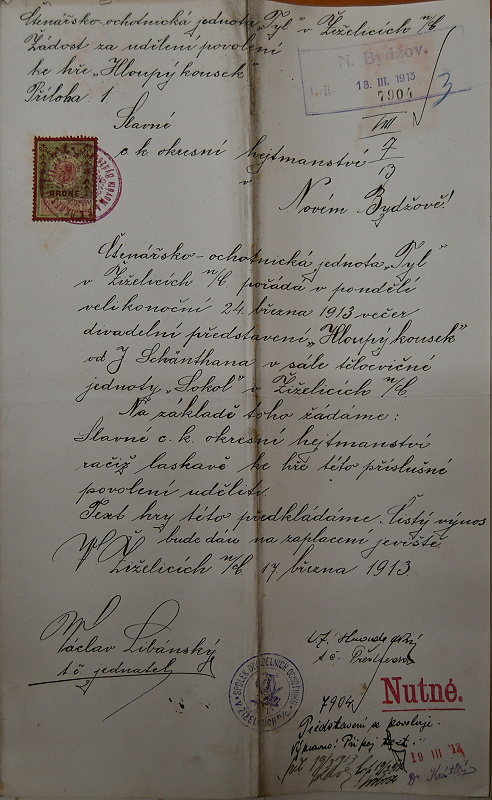 Čtenářsko-ochotnická jednota „Tyl“ v Žiželicích n/C.
Žádost za udělení povolení
ke hře „Hloupý kousek“
Příloha 1.
N. Bydžov.
18. III. 1913
7904
3
Slavné
c. k. okresní hejtmanství
v
Novém Bydžově!
Čtenářsko-ochotnická jednota „Tyl“
v Žiželicích n/C. pořádá v pondělí
velikonoční 24. března 1913 večer
divadelní představení „Hloupý kousek“
od J. Schönthana v sále tělocvičné
jednoty „Sokol“ v Žiželicích n/C.
Na základě toho žádáme:
Slavné c. k. okresní hejtmanství
račiž laskavě ke hře této příslušné
povolení uděliti.
Text hry této předkládáme. Čistý výnos
bude dán na zaplacení jeviště.
V Žiželicích n/C. 17 března 1913.
Václav Libánský
t. č. jednatel
t. č.
Nutné.
7904
Představení se povoluje.
19 III 13